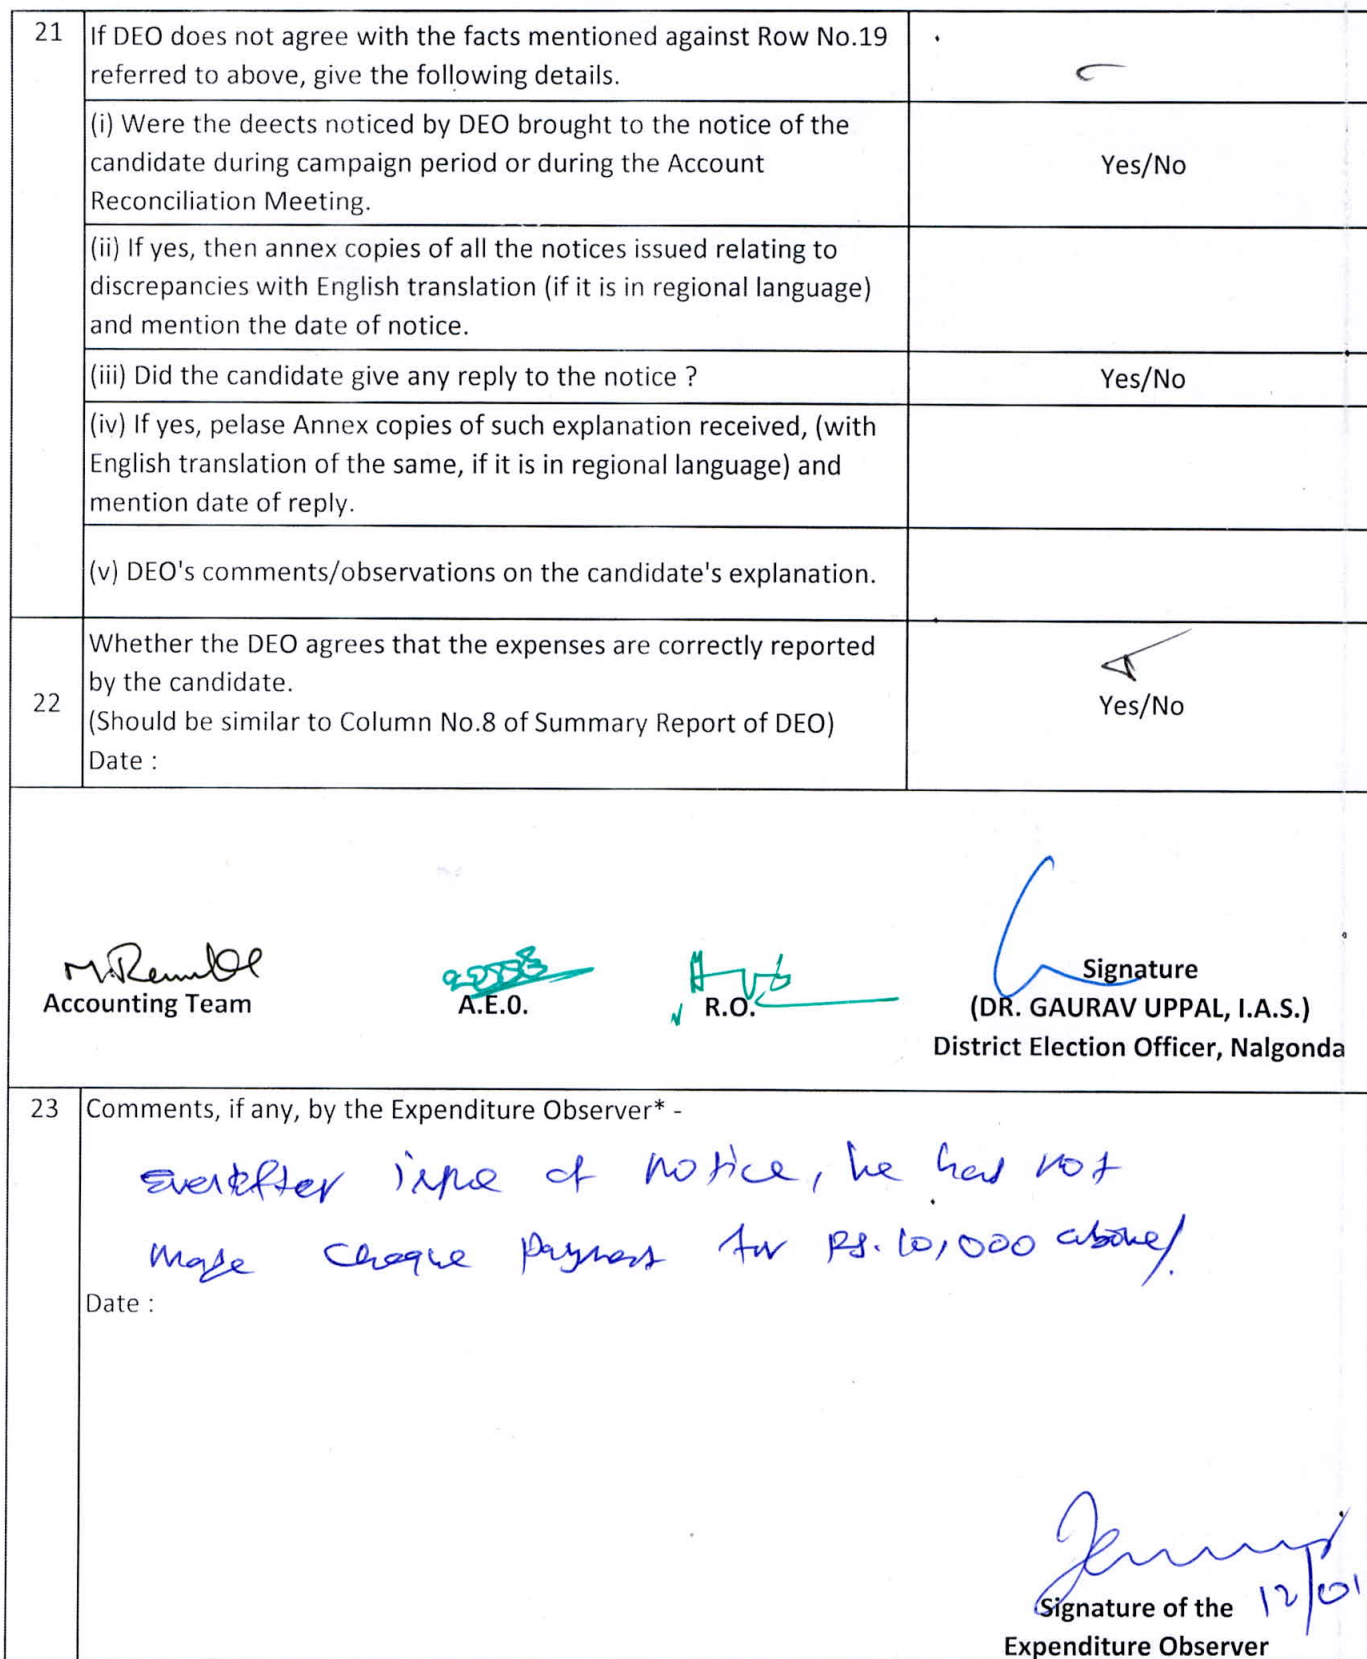 21 If DEO does not agree with the facts mentioned against Row No.19
referred to above, give the following details.
(i) Were the deects noticed by DEO brought to the notice of the
candidate during campaign period or during the Account
Reconciliation Meeting.
Yes/No
(ii) If yes, then annex copies of all the notices issued relating to
discrepancies with English translation (if it is in regional language)
and mention the date of notice.
(iii) Did the candidate give any reply to the notice ? Yes/No
(iv) If yes, pelase Annex copies of such explanation received, (with
English translation of the same, if it is in regional language) and
mention date of reply.
(v) DEO's comments/observations on the candidate's explanation.
22 Whether the DEO agrees that the expenses are correctly reported
by the candidate.
(Should be similar to Column No.8 of Summary Report of DEO)
Date :
Yes/No
Accounting Team A.E.O. R.O. Signature
(DR. GAURAV UPPAL, I.A.S.)
District Election Officer, Nalgonda
23 Comments, if any, by the Expenditure Observer* -
Even after issue of notice, he has not
made cheque payment for Rs. 10,000 above.
Date :
12/01
Signature of the
Expenditure Observer